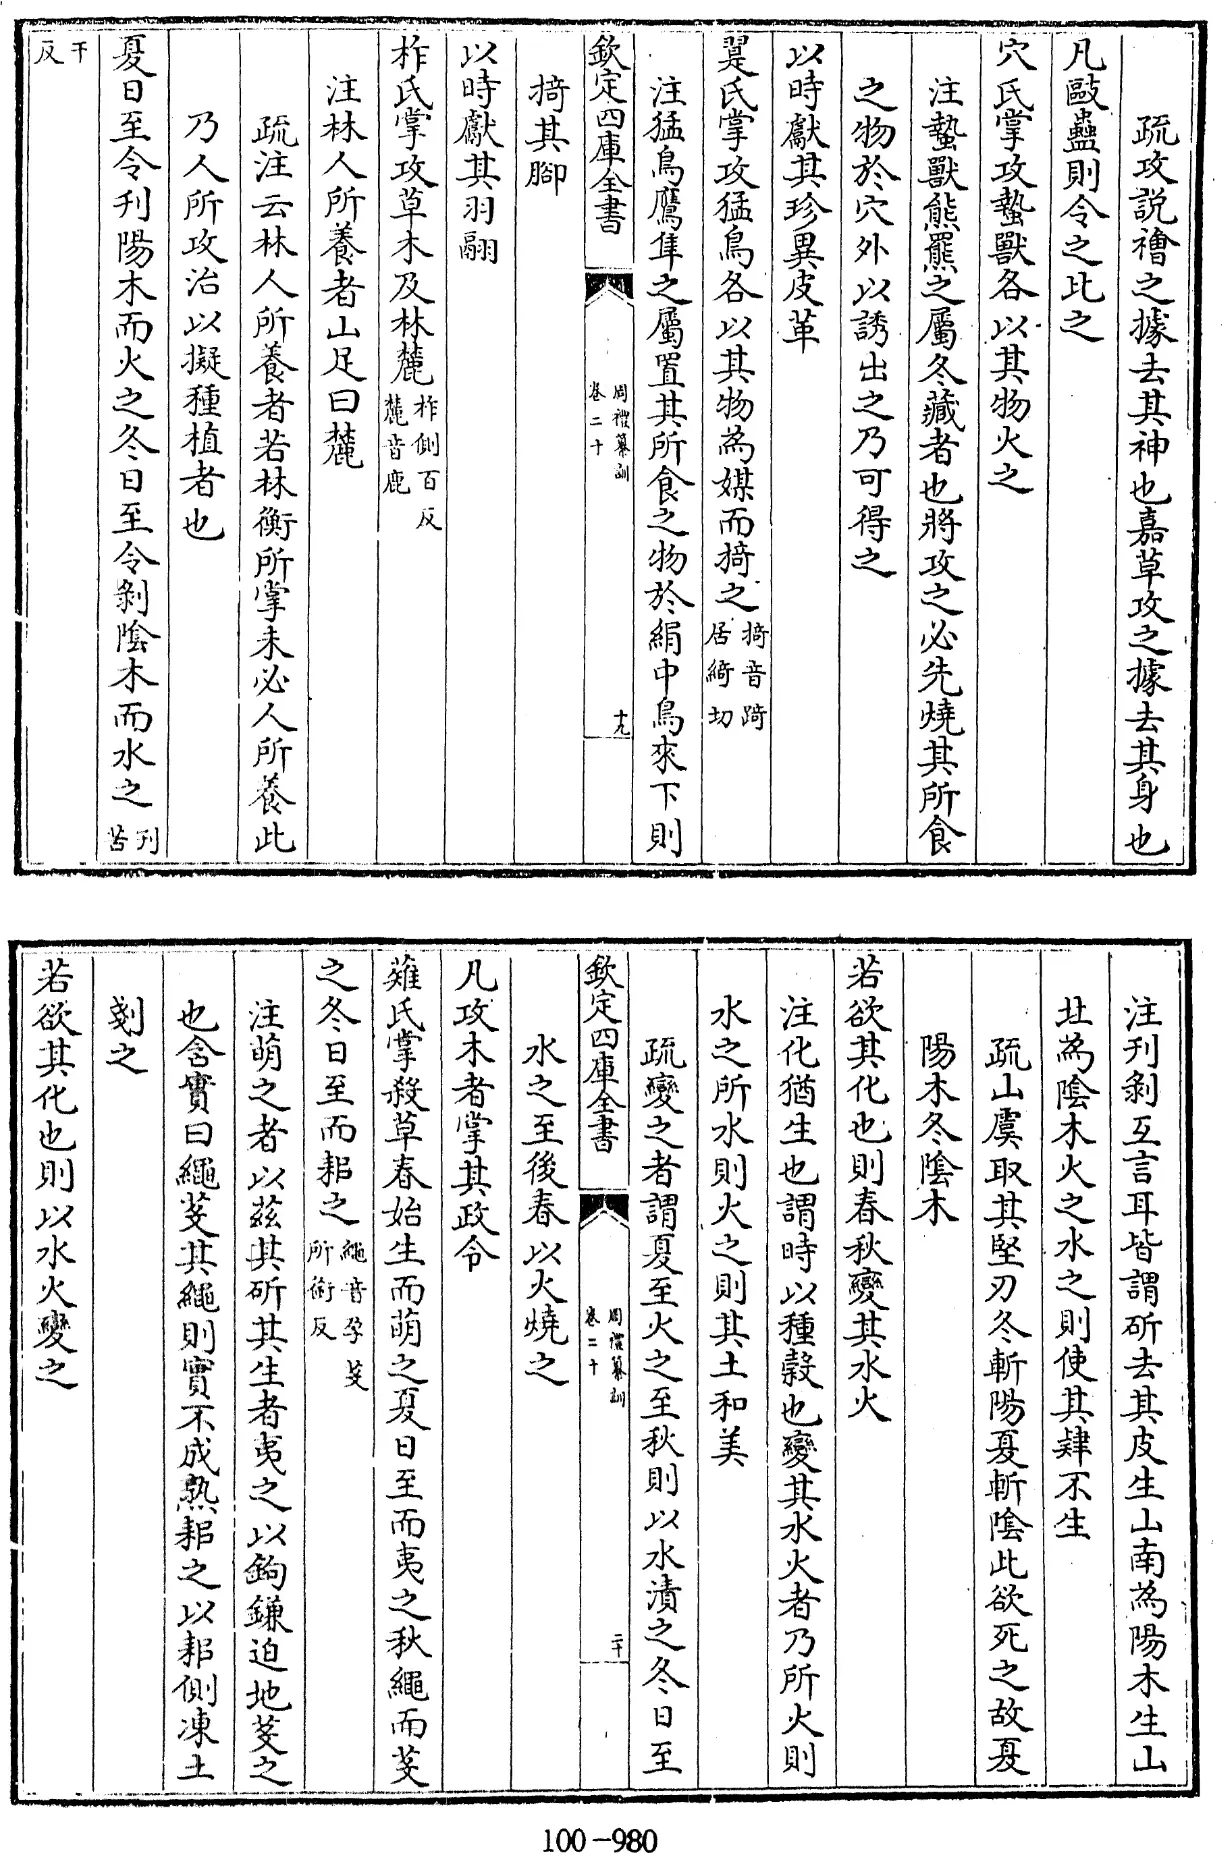 疏攻説禬之據去其神也嘉草攻之據去其身也
凡敺蠱則令之比之
穴氏掌攻蟄獸各以其物火之
注蟄獸熊羆之屬冬藏者也將攻之必先燒其所食
之物於穴外以誘出之乃可得之
以時獻其珍異皮革
翨氏掌攻猛鳥各以其物為媒而掎之掎音踦居綺切
注猛鳥鷹隼之屬置其所食之物於絹中鳥來下則
欽定四庫全書 周禮纂訓 卷二十 十九
掎其腳
以時獻其羽翮
柞氏掌攻草木及林麓柞側百反麓音鹿
注林人所養者山足曰麓
疏注云林人所養者若林衡所掌未必人所養此
乃人所攻治以擬種植者也
夏日至令刋陽木而火之冬日至令剝陰木而水之刋苦
干反
注刋剝互言耳皆謂斫去其皮生山南為陽木生山
北為陰木火之水之則使其肄不生
疏山虞取其堅刃冬斬陽夏斬陰此欲死之故夏
陽木冬陰木
若欲其化也則春秋變其水火
注化猶生也謂時以種穀也變其水火者乃所火則
水之所水則火之則其土和美
疏變之者謂夏至火之至秋則以水漬之冬日至
欽定四庫全書 周禮纂訓 卷二十 二十
水之至後春以火燒之
凡攻木者掌其政令
薙氏掌殺草春始生而萌之夏日至而夷之秋繩而芟
之冬日至而耜之繩音孕芟所銜反
注萌之者以茲其斫其生者夷之以鉤鎌迫地芟之
也含實曰繩芟其繩則實不成熟耜之以耜側凍土
剗之
若欲其化也則以水火變之
100-980